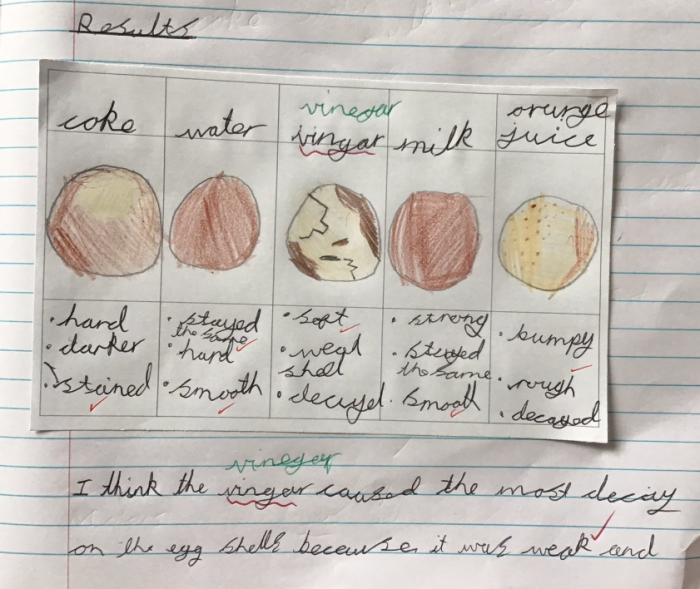 Results
coke
water
vinegar
vingar
milk
orange
juice
• hard
• darker
• stained
• stayed
the same
• hard
• smooth
• soft
• weak
shell
• decayed
• strong
• stayed
the same
• smooth
• bumpy
• rough
• decayed
vinegar
I think the vingar caused the most decay
on the egg shells because it was weak and